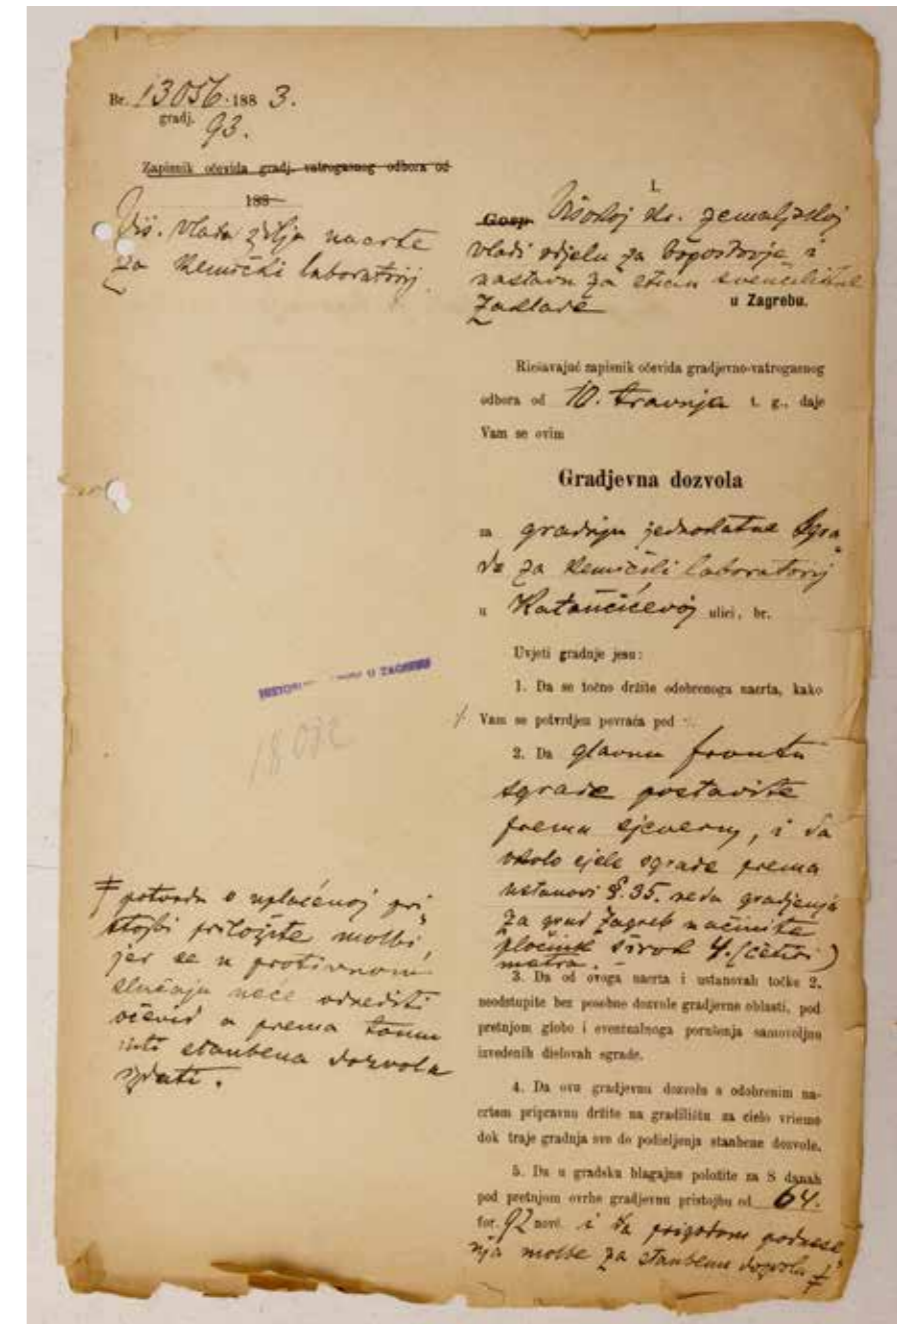 Br. 13056. 188 3.
gradj. 93.
Zapisnik očevida gradj. vatrogasnog odbora od
188
Vis. vlada šilja nacrte
za kemički laboratorij.
I.
Gosp. Visokoj kr. zemaljskoj
vladi odjelu za bogoštovje i
nastavu za stran sveučilištne
zaklade u Zagrebu.
Riešavajuć zapisnik očevida gradjevno-vatrogasnog
odbora od 10. travnja t. g., daje
Vam se ovim
Gradjevna dozvola
za gradnju jednokatne sgra
de za kemički laboratorij
u Katančićevoj ulici, br.
Uvjeti gradnje jesu:
1. Da se točno držite odobrenoga nacrta, kako
Vam se potvrdjen povraća pod ·/.
2. Da glavnu frontu
sgrade postavite
prema sjeveru, i da
okolo cijele sgrade prema
ustanovi §. 35. reda gradjenja
za grad Zagreb načinite
pločnik širok 4. (četiri)
metra.
3. Da od ovoga nacrta i ustanovah točke 2.
neodstupite bez posebne dozvole gradjevne oblasti, pod
pretnjom globe i eventualnoga porušenja samovoljno
izvedenih dielovah sgrade.
4. Da ovu gradjevnu dozvolu s odobrenim na-
crtom pripravnu držite na gradilištu za cielo vrieme
dok traje gradnja sve do podieljenja stanbene dozvole.
5. Da u gradsku blagajnu položite za 8 danah
pod pretnjom ovrhe gradjevnu pristojbu od 64.
for. 92 novč. i da prigodom podnese
nja molbe za stanbenu dozvolu ‡
‡ potvrdu o uplaćenoj pri
stojbi priložite molbi
jer se u protivnom
slučaju neće odrediti
očevid a prema tomu
niti stanbena dozvola
izdati.
U ZAGREBU
18032